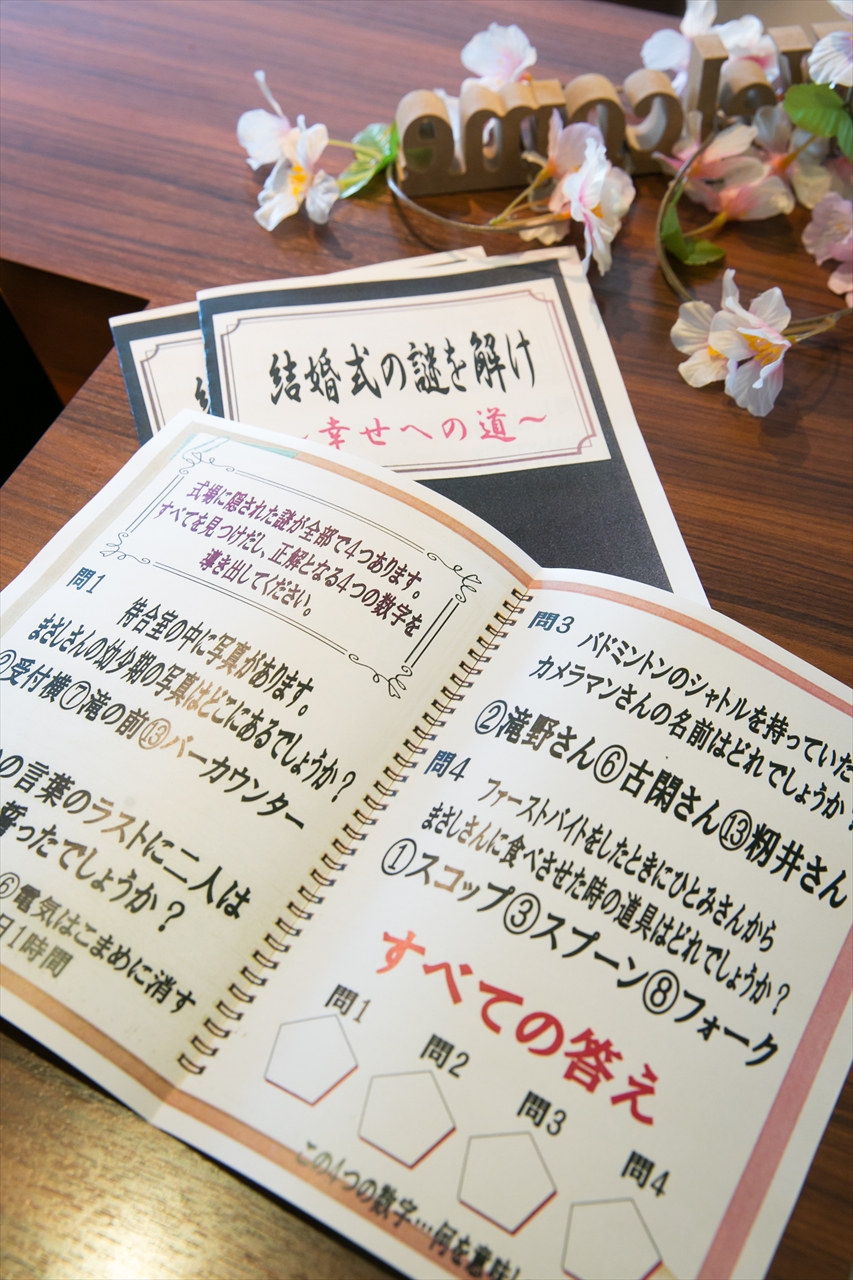 welcome
結婚式の謎を解け
～幸せへの道～
式場に隠された謎が全部で4つあります。
すべてを見つけだし、正解となる4つの数字を
導き出してください。
問1
待合室の中に写真があります。
まさしさんの幼少期の写真はどこにあるでしょうか？
②受付横⑦滝の前⑬バーカウンター
の言葉のラストに二人は
誓ったでしょうか？
⑥電気はこまめに消す
日1時間
問3
バドミントンのシャトルを持っていた
カメラマンさんの名前はどれでしょうか？
②滝野さん⑥古閑さん⑬籾井さん
問4
ファーストバイトをしたときにひとみさんから
まさしさんに食べさせた時の道具はどれでしょうか？
①スコップ③スプーン⑧フォーク
すべての答え
問1
問2
問3
問4
この4つの数字…何を意味し